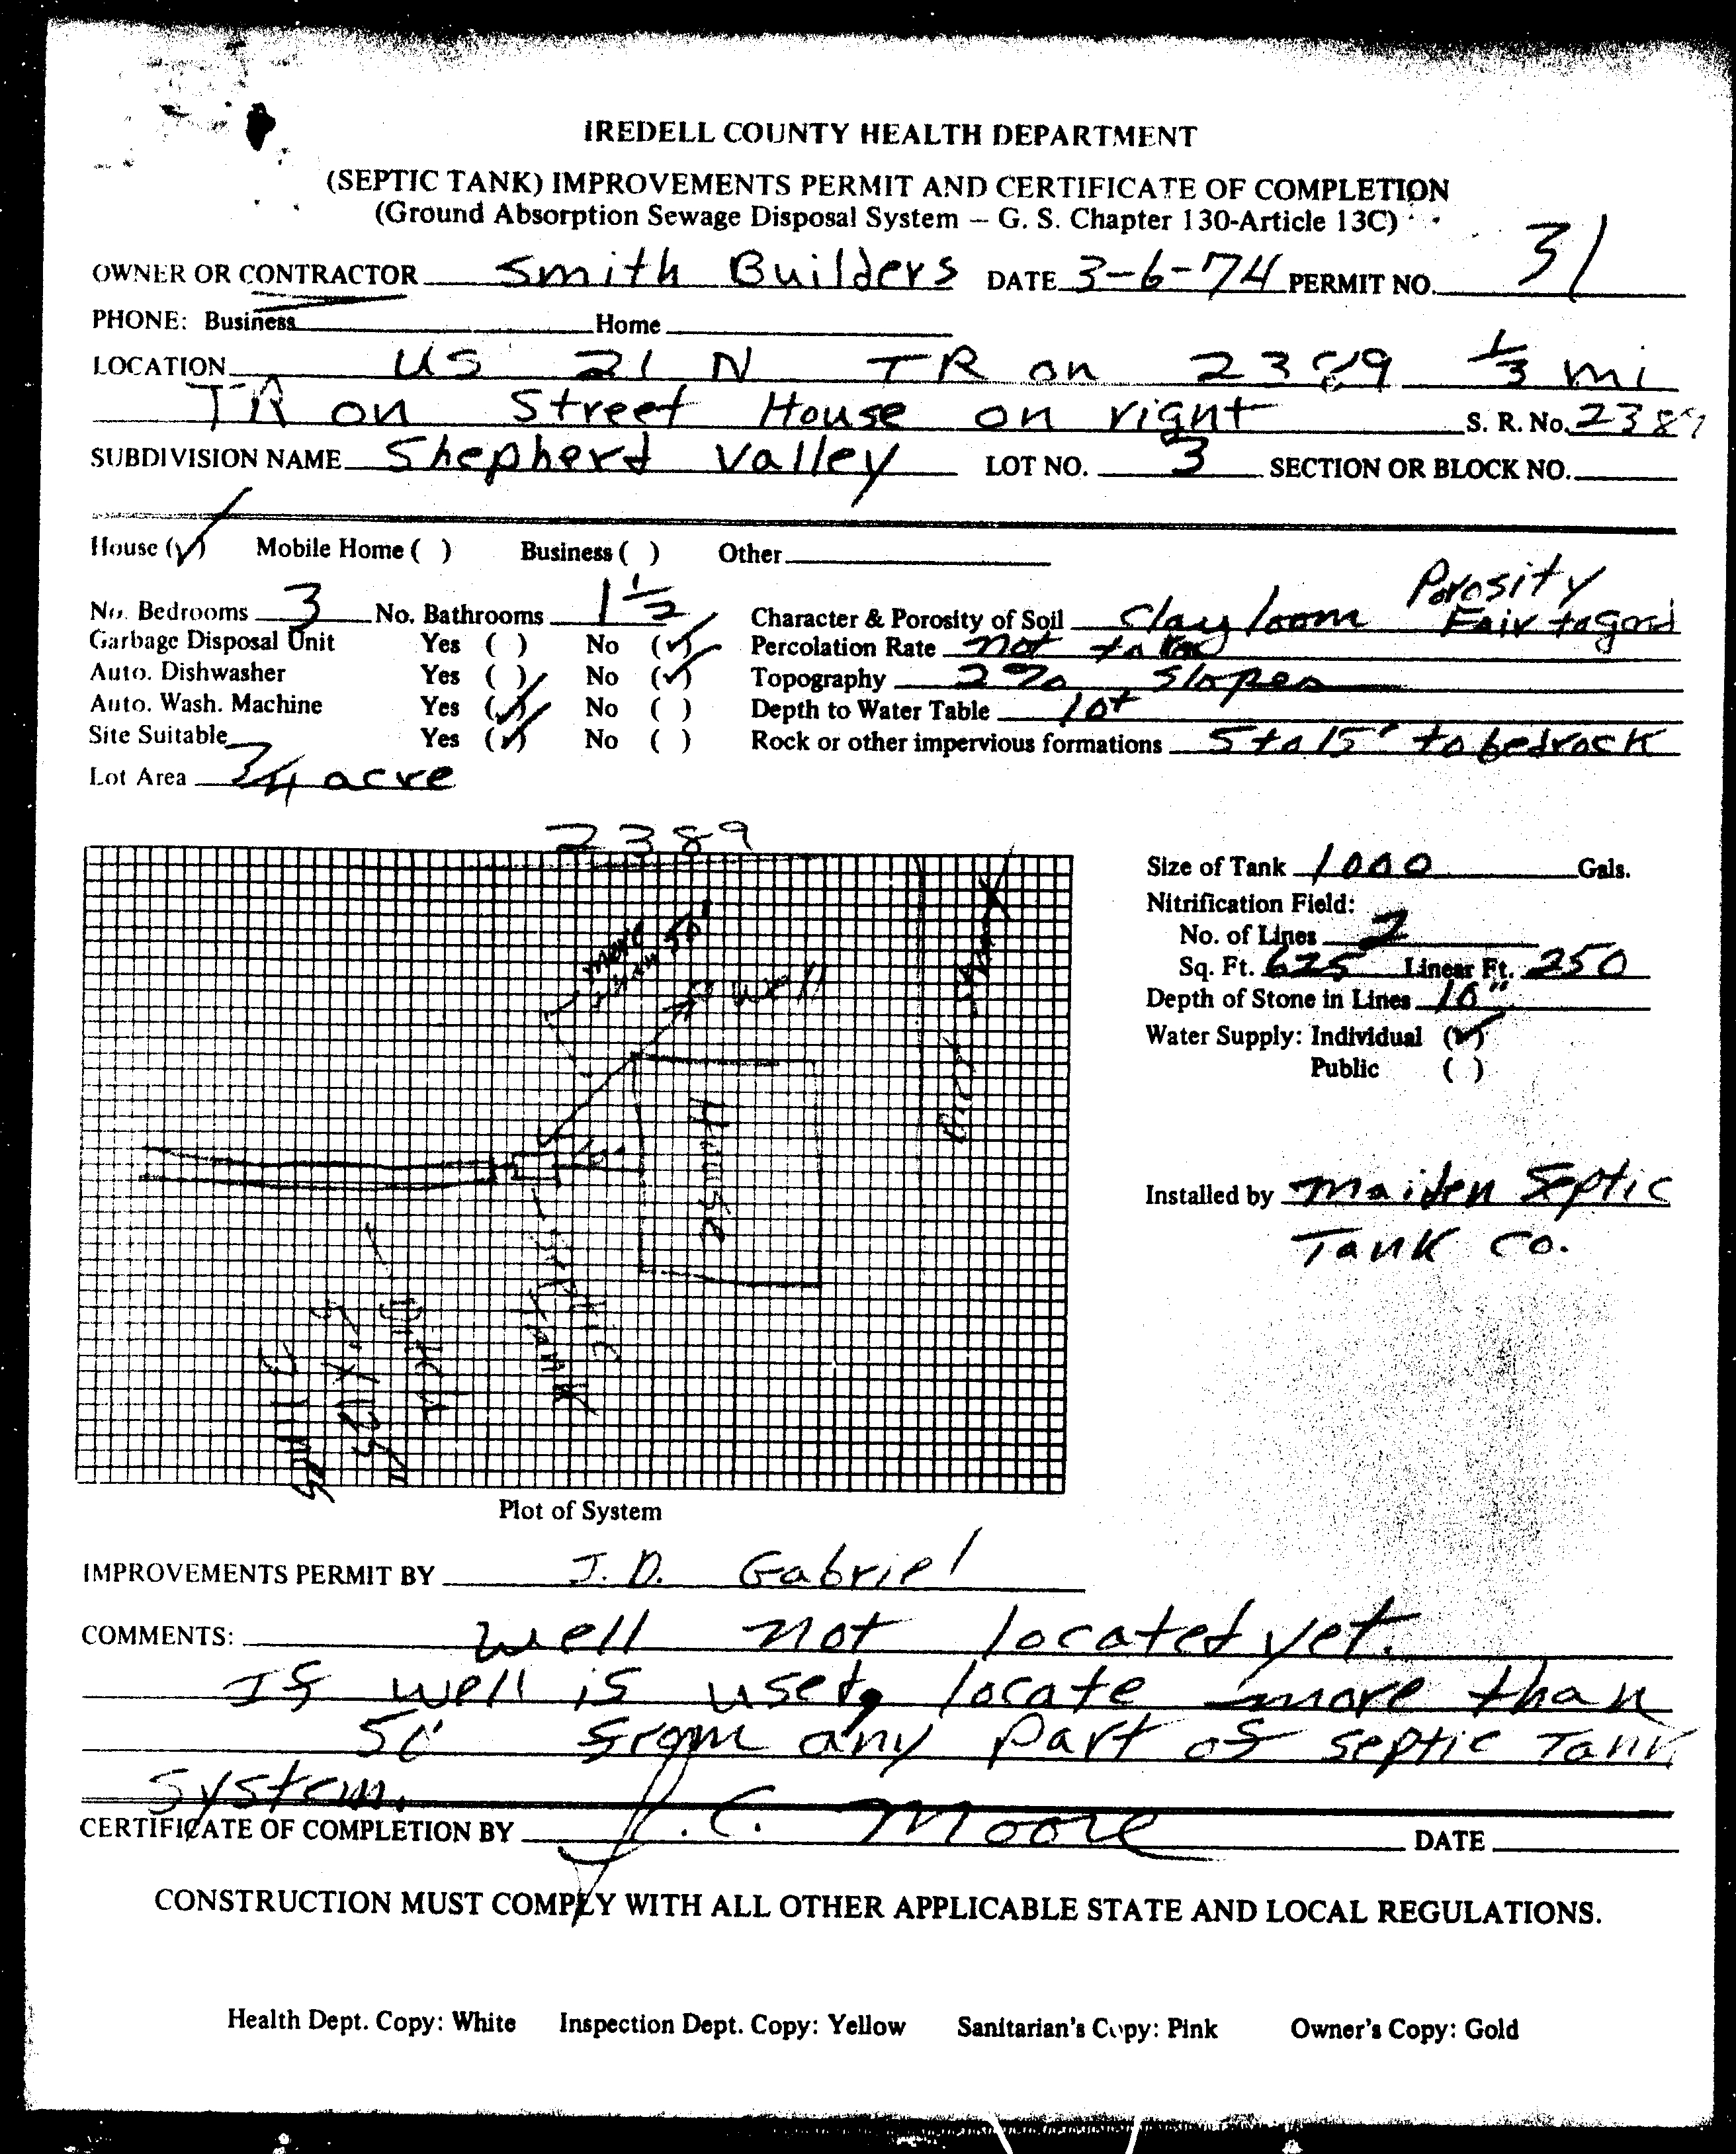 IREDELL COUNTY HEALTH DEPARTMENT
(SEPTIC TANK) IMPROVEMENTS PERMIT AND CERTIFICATE OF COMPLETION
(Ground Absorption Sewage Disposal System — G. S. Chapter 130-Article 13C)
OWNER OR CONTRACTOR Smith Builders DATE 3-6-74 PERMIT NO. 31
PHONE: Business Home
LOCATION US 21 N TR on 2389 1/3 mi
TR on Street House on right S. R. No. 2389
SUBDIVISION NAME Shepherd Valley LOT NO. 3 SECTION OR BLOCK NO.
House (✓) Mobile Home ( ) Business ( ) Other
Porosity
No. Bedrooms 3 No. Bathrooms 1 1/2 Character & Porosity of Soil Clay loom Fair to good
Garbage Disposal Unit Yes ( ) No (✓) Percolation Rate not
Auto. Dishwasher Yes ( ) No (✓) Topography 2% slopes
Auto. Wash. Machine Yes (✓) No ( ) Depth to Water Table 10+
Site Suitable Yes (✓) No ( ) Rock or other impervious formations 5 to 15' to bedrock
Lot Area 3/4 acre
2389
more than 50'
well
House
septic tank
Ditch
5' x 125'
2 lines
Size of Tank 1000 Gals.
Nitrification Field:
No. of Lines 2
Sq. Ft. 625 Linear Ft. 250
Depth of Stone in Lines 10"
Water Supply: Individual (✓)
Public ( )
Installed by Maiden Septic
Tank Co.
Plot of System
IMPROVEMENTS PERMIT BY J. D. Gabriel
COMMENTS: Well not located yet.
If well is used, locate more than
50' from any part of septic Tank
System.
CERTIFICATE OF COMPLETION BY J. C. Moore DATE
CONSTRUCTION MUST COMPLY WITH ALL OTHER APPLICABLE STATE AND LOCAL REGULATIONS.
Health Dept. Copy: White Inspection Dept. Copy: Yellow Sanitarian's Copy: Pink Owner's Copy: Gold